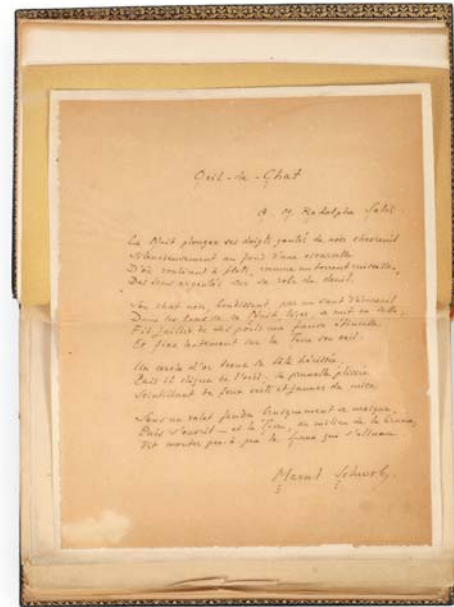 Œil-de-Chat
A M. Rodolphe Salis.
La Nuit plongea ses doigts gantés de noir chevreuil
Silencieusement au fond d'une escarcelle
D'où roulaient à flots, comme un torrent ruisselle,
Des sous argentés sur sa robe de deuil.
Son chat noir, bondissant, par un saut d'écureuil
Dans les de la Nuit
Fit jaillir de ses poils une fauve étincelle
Et fixa lentement sur la Terre son œil.
Un cercle d'or troua sa tête hérissée,
Puis il cligna de l'œil, la prunelle plissée
Scintillant de feux verts et jaunes de mica.
Sous un volet fendu brusquement
Puis s'ouvrit — et la Terre, au milieu de la brume,
Vit monter peu à peu le qui s'allume
Marcel Schwob.